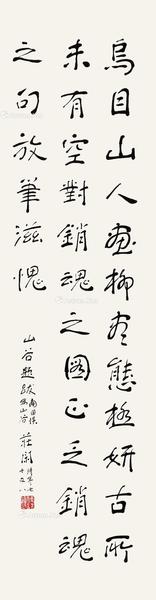 烏目山人画柳尽態極妍古所
未有空對銷魂之圖正乏銷魂
之句放筆滋愧
山谷題跋
莊闲